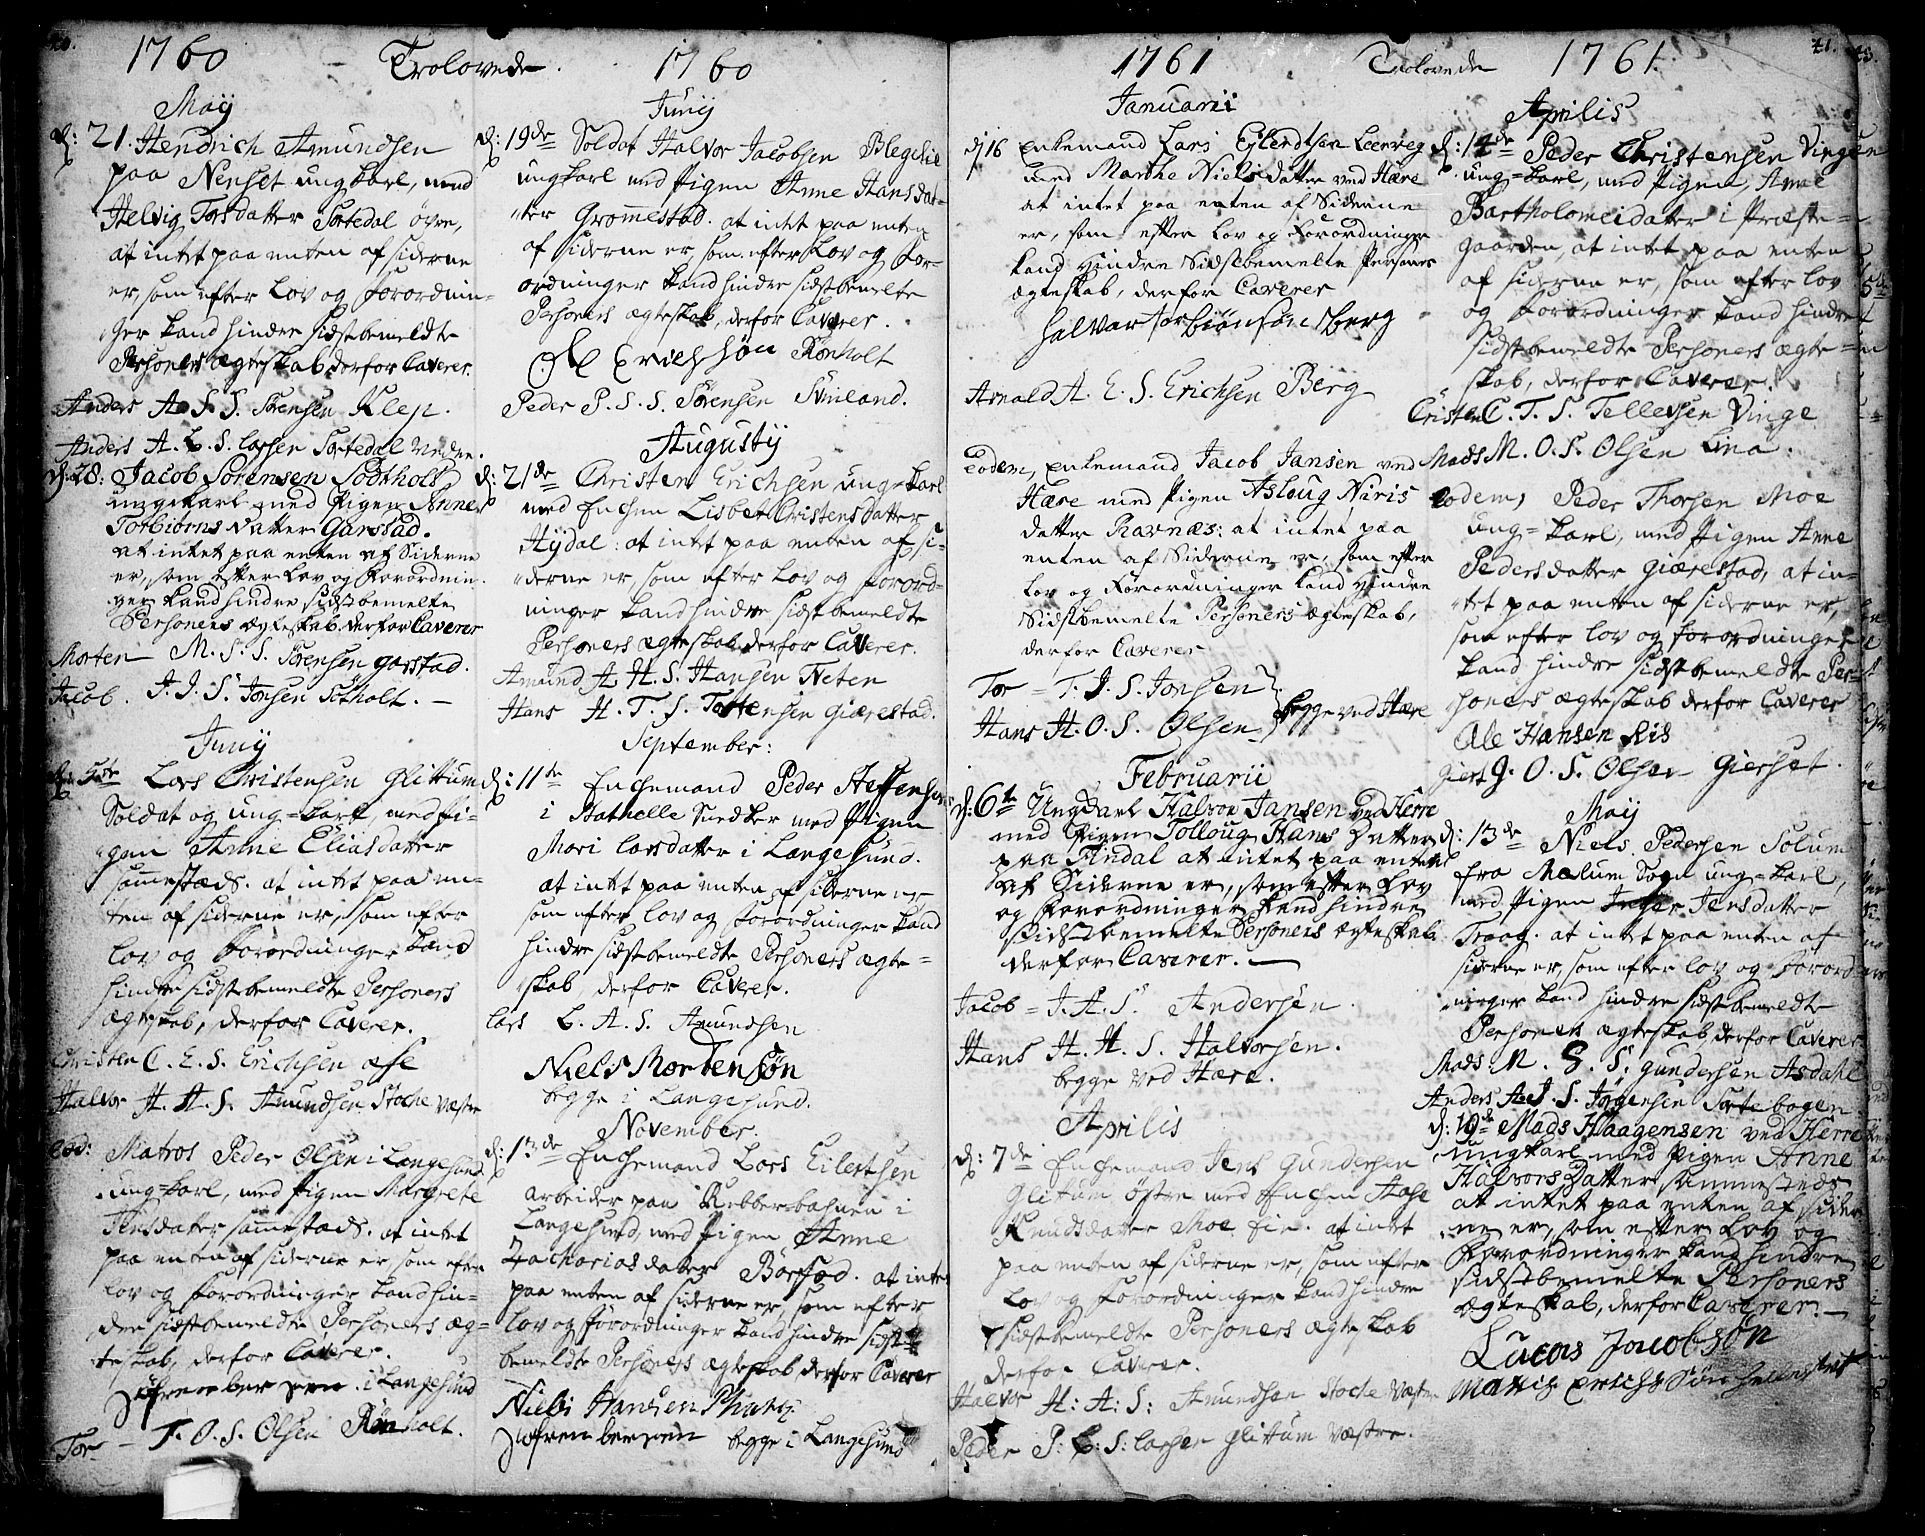 40.
1760 Trolovede. 1760
Maÿ
d: 21. Hendrich Amundsen
paa Nenset ungkarl, med
Helvig Torsdatter Tortedal øvre,
at intet paa enten af siderne
er, som efter Lov og Forordnin-
ger kand hindre sidstbemeldte
Personers ægteskab derfor Caverer.
Anders A. S. S. Sørensen Klep.
Anders A. L. S. Larsen Tortedal nedre.
d: 28: Jacob Sørensen Sodtholt
ungekarl med Pigen Anne
Torbiøons Datter Garstad.
at intet paa enten af Siderne
er, som efter Lov og Forordnin-
ger kand hindre sidstbemelte
Personers ægteskab. derfor Caverer
Morten M. S. S. Sørensen garstad.
Jacob. J. J. S. Jonsen Sotholt. –
Junÿ
d: 5te Lars Christensen Glittum
Soldat og ung-karl, med Pi-
gen Anne Eliasdatter
sammestæds. at intet paa en-
ten af siderne er, som efter
Lov og Forordninger kand
hindre sidstbemeldte Personers
ægteskab, derfor Caverer.
Christen C. E. S. Erichsen ase
Halvor H. A. S. Amundsen Stoche Væstre
eod: Matros Peder Olsen i Langesund
ung-karl, med Pigen Margrete
Jensdater sammestæds. at intet
paa enten af siderne er som efter
Lov og Forordninger kand hin-
dre sidstbemeldte Personers æg-
teskab, derfor Caverer.
i Langesund
Tor – T. O. S. Olsen Rønholt.
Junÿ
d: 19de Soldat Halvor Jacobsen Blegelie
ungkarl med Pigen Anne Hansdat-
ter Grommestad. at intet paa enten
af siderne er, som efter Lov og For-
ordninger kand hindre sidstbemelte
Personers ægteskab, derfor Caverer.
Ole Erichsøn Rønholt
Peder P. S. S. Sørensen Svinland.
Augustÿ
d: 21de Christen Erichsen ung-karl
med Enchen Lisbet Christensdatter
Hÿdal: at intet paa enten af si-
derne er, som efter Lov og Forord-
ninger kand hindre sidstbemeldte
Personers ægteskab derfor Caverer.
Amund A. H. S. Hansen Neten
Hans H. T. S. Tostensen giærestad.
September:
d: 11te Enchemand Peder Steffensen
i Hathelle Snedker med Pigen
Mari Larsdatter i Langesund.
at intet paa enten af siderne er,
som efter Lov og Forordninger kand
hindre sidstbemeldte Personers ægte-
skab, derfor Caverer.
Lars L. A. S. Amundsen
Niels Mortensøn
begge i Langesund.
November.
d: 13de Enchemand Lars Eilertsen
arbeider paa Rebberbahnen i
Langesund, med Pigen Anne
Zachariasdater Børsæd. at intet
paa enten af siderne er, som efter
Lov og Forordninger kand hindre sidst
bemeldte Personers ægteskab derfor Caverer
Niels Hansen
begge i Langesund
41.
1761 Trolovede 1761.
Januarii
d 16 Enkemand Lars Eÿlerdtsen Leerveg
med Marthe Nielsdatter ved Hære
at intet paa enten af Siderne
er, som efter Lov og Forordninger
kand Hindre Sidstbemelte Personers
ægteskab, derfor Caverer
halvar torbiønsøns berg
Arnold A. E. S. Erichsen Berg
Eodem, Enkemand Jacob Jansen ved
Hære med Pigen Asloug Naris
datter Ravnæs: at intet paa
enten af Siderne er, som efter
Lov og Forordninger kand Hindre
Sidstbemelte Personers ægteskab,
derfor Caverer
Tor – T. J. S. Jonsen
Hans H. O. S. Olsen } begge ved Hære
Februarii
d: 6te Ungkarl Halvor Jansen ved Herre
med Pigen Tolloug Hans Datter
paa Findal at intet paa enten
af Siderne er, som efter Lov
og Forordninger kand hindre
sidstbemelte Personers ægteskab.
derfor Caverer. –
Jacob – J. A. S. Andersen.
Hans H. H. S. Halvorsen.
begge ved Hære.
Aprilis
d: 7de Enchemand Jens Gundersen
Glitum østre med Enchen Aase
Knudsdatter Moe Eie. at intet
paa enten af siderne er, som efter
Lov og Forordninger kand hindre
sidstbemeldte Personers ægteskab
derfor Caverer.
Halvor H: A: S: Amundsen Stoche Væstre
Peder P: L: S: Larsen Glittum væstre.
Aprilis
d: 14de Peder Christensen Vinge
ung-karl, med Pigen, Anne
Bartholomeidater i Præste-
gaarden, at intet paa enten
af siderne er, som efter Lov
og Forordninger kand hindre
sidstbemeldte Personers ægte-
skab, derfor Caverer.
Christen C. T. S. Tellevsen Vinge
Mads M. O. S. Olsen Lina.
Eodem, Peder Thorsen Moe
ung-karl, med Pigen Anne
Pedersdatter giærestad, at in-
tet paa enten af siderne er,
som efter Lov og Forordninger
kand hindre sidstbemeldte Per-
soners ægteskab derfor Caverer
Ole Hansen Riis
Giert J. O. S. Olsen Gierset.
Maÿ
d: 13de Niels Pedersen Solum
fra Melum Sogn ung-karl,
med Pigen Inger Jensdatter
Traag. at intet paa enten af
siderne er, som efter Lov og Forord-
ninger kand hindre sidstbemeldte
Personers ægteskab, derfor Caverer
Mads M. G. S. Gundersen Asdahl
Anders A. J. S. Jørgensen Tortebogen
d: 19de Mads Haagensen ved Herre
Ungkarl med Pigen Anne
Halvors Datter sammesteds
at intet paa enten af sider
ne er, som efter Lov og
Forordninger kand hindre
sidstbemelte Personers
ægteskab, derfor Caverer. –
Lucas Jacobsøn